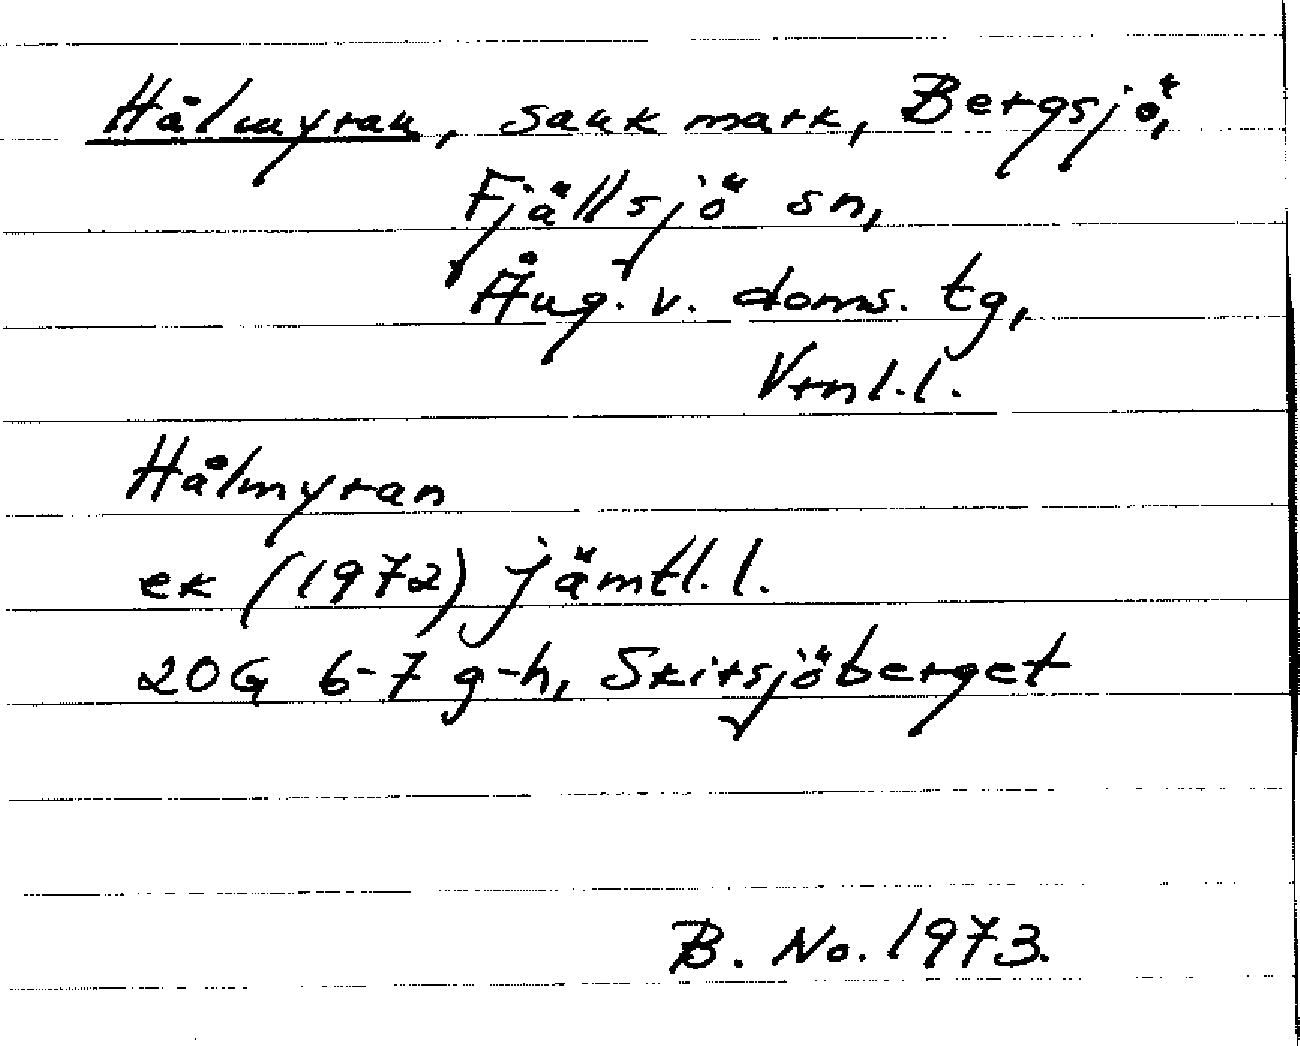 Hålmyran, sank mark, Bergsjö,
Fjällsjö sn,
Ång. v. doms. tg,
Vrnl.l.
Hålmyran
ek (1972) Jämtl. l.
20G 6-7 g-h, Skirsjöberget
B. No. 1973.